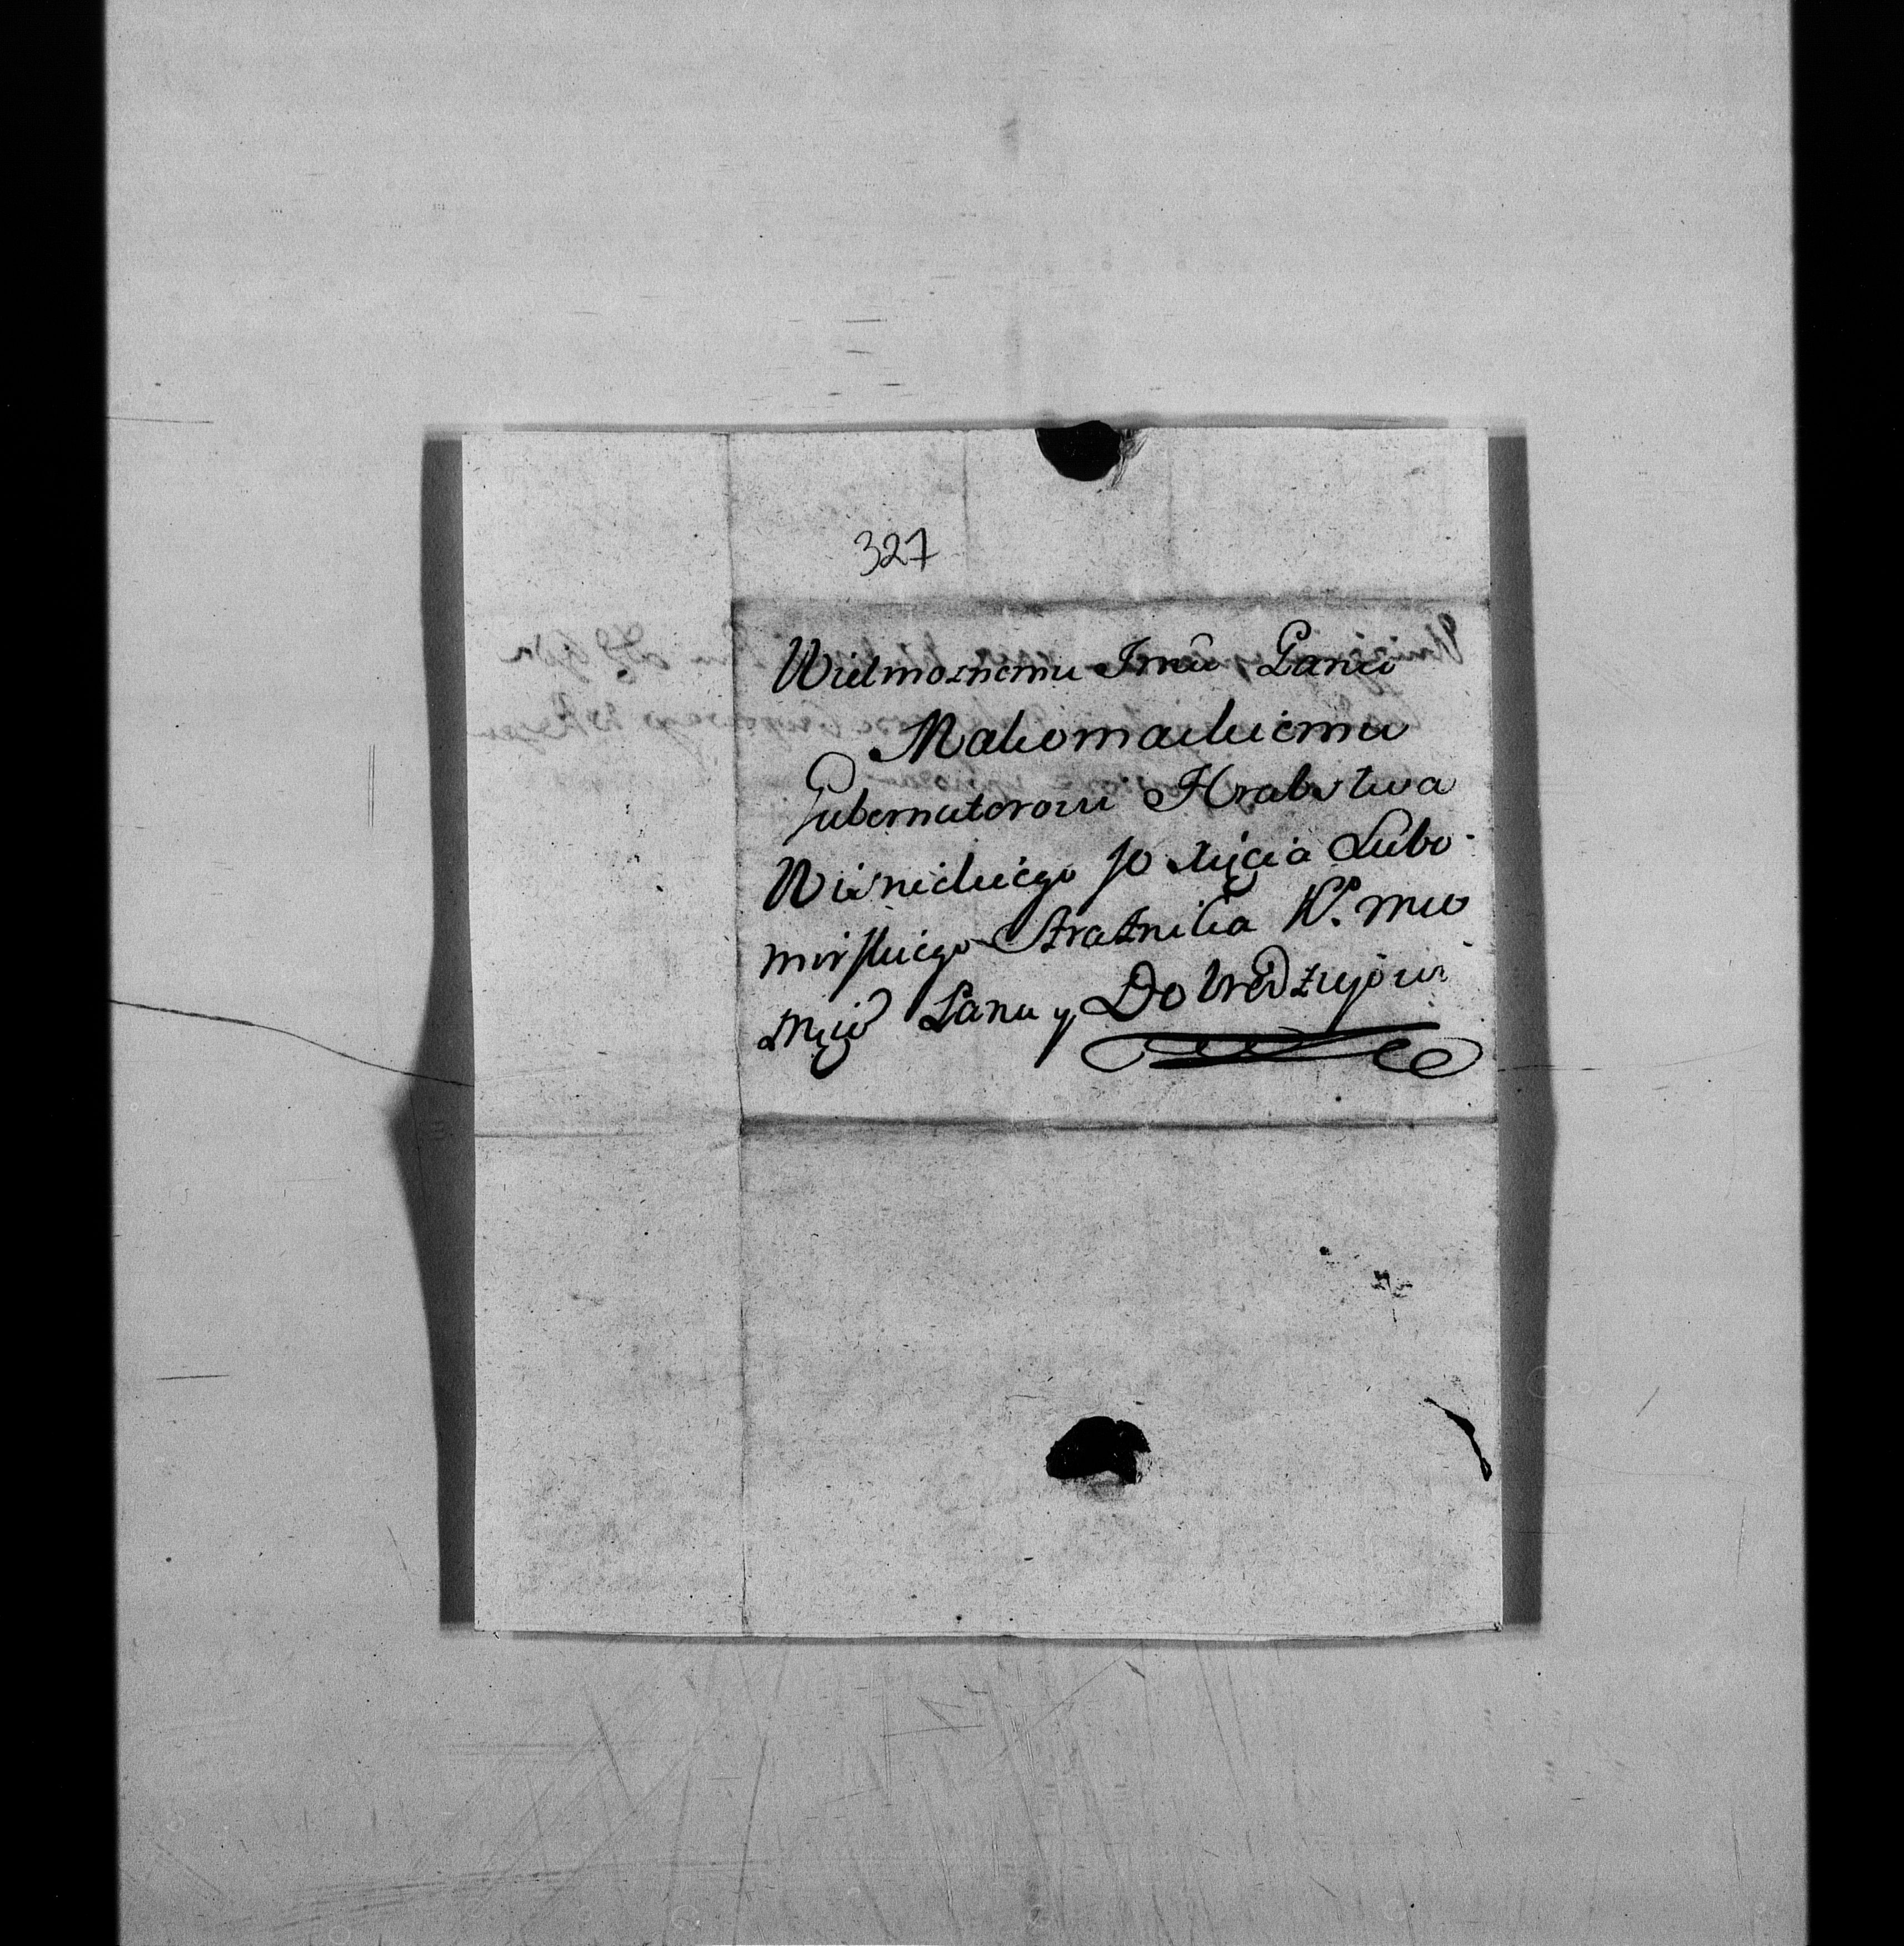 327
Wielmoznemu Jmću Panu
Makomaskiemu
Gubernatorowi Hrabstwa
Wisnickiego JO Xięcia Lubo-
mirskiego Straznika W. mu
Panu y Dobrodziejowi